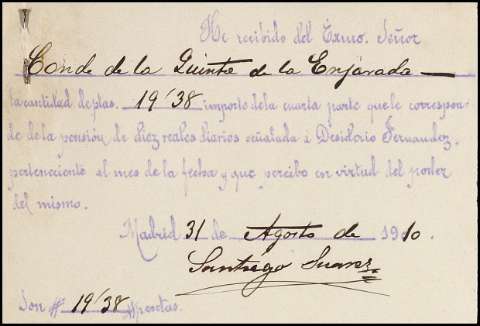 He recibido del Excmo. Señor
Conde de la Quinta de la Enjarada
la cantidad de ptas. 19'38 importe de la cuarta parte que le correspon-
de de la pensión de diez reales diarios señalada á Desiderio Fernandez,
perteneciente al mes de la fecha y que percibo en virtud del poder
del mismo.
Madrid 31 de Agosto de 1910.
Santiago Suarez
Son # 19'38 # pesetas.